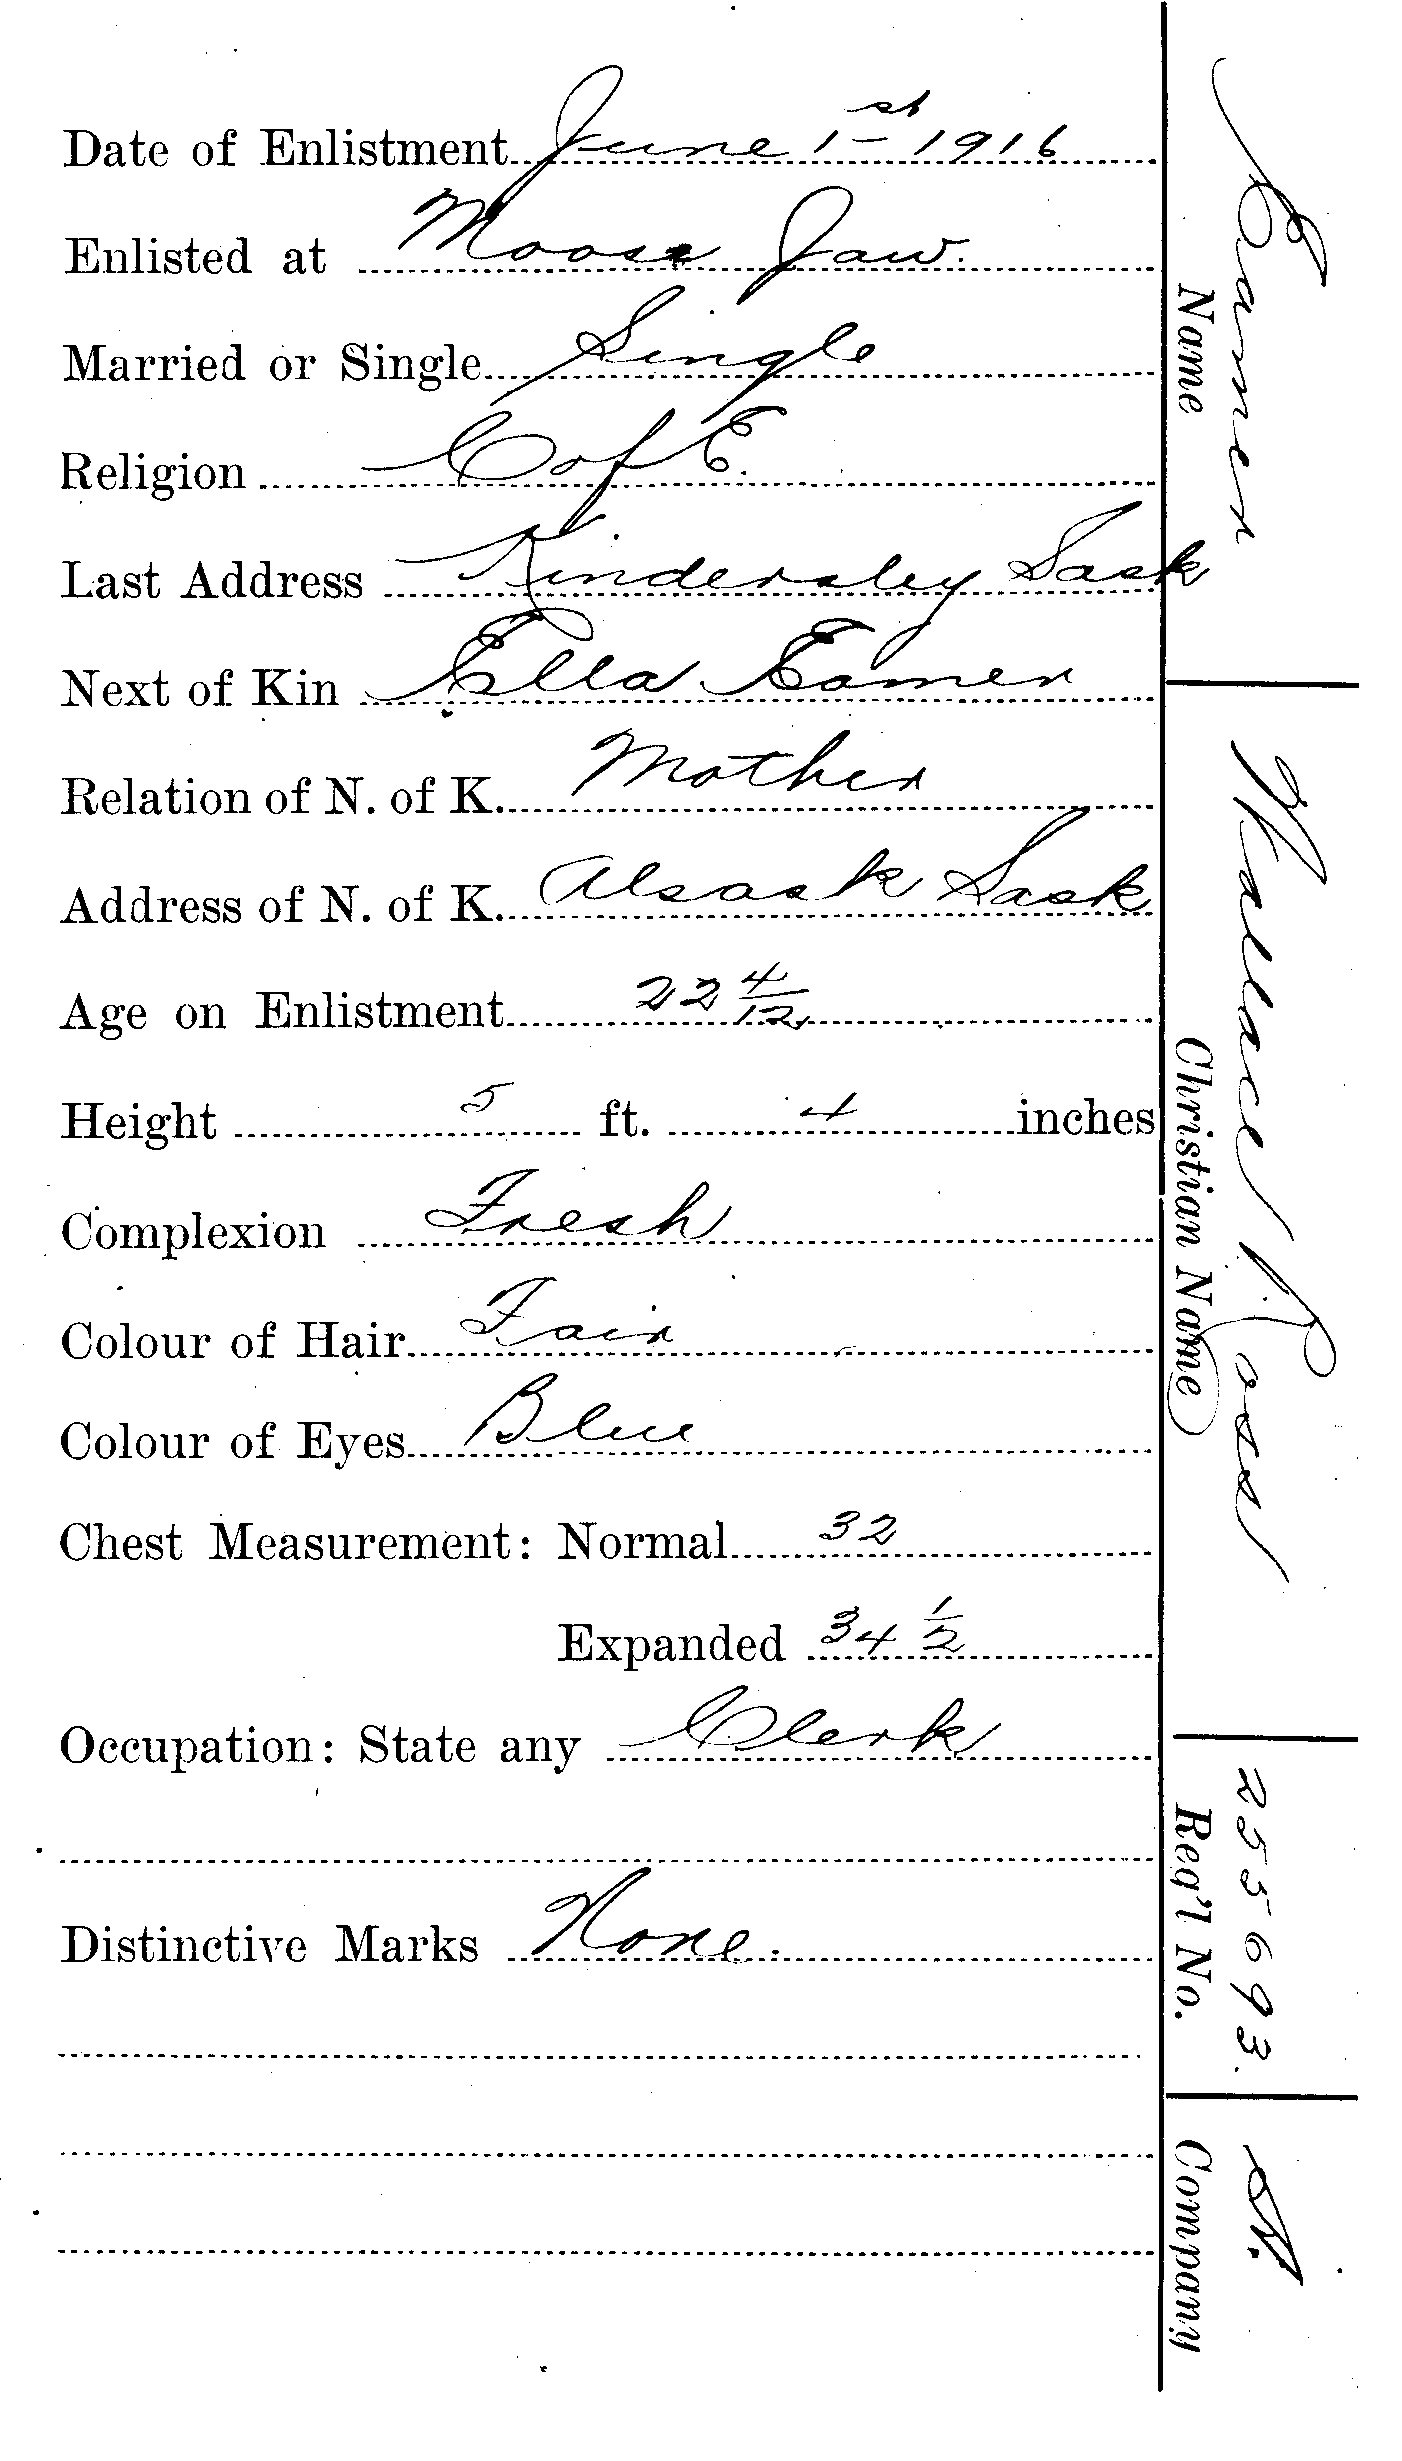 Date of Enlistment June 1st 1916
Enlisted at Moose Jaw.
Married or Single Single
Religion C of E.
Last Address Kindersley Sask
Next of Kin Ella Eamer
Relation of N. of K. Mother
Address of N. of K. Alsask Sask
Age on Enlistment 22 4/12
Height 5 ft. 4 inches
Complexion Fresh
Colour of Hair Fair
Colour of Eyes Blue
Chest Measurement: Normal 32
Expanded 34 1/2
Occupation: State any Clerk
Distinctive Marks None.
Eamer
Name
Wallace Ross
Christian Name
255693
Reg'l No.
A.
Company